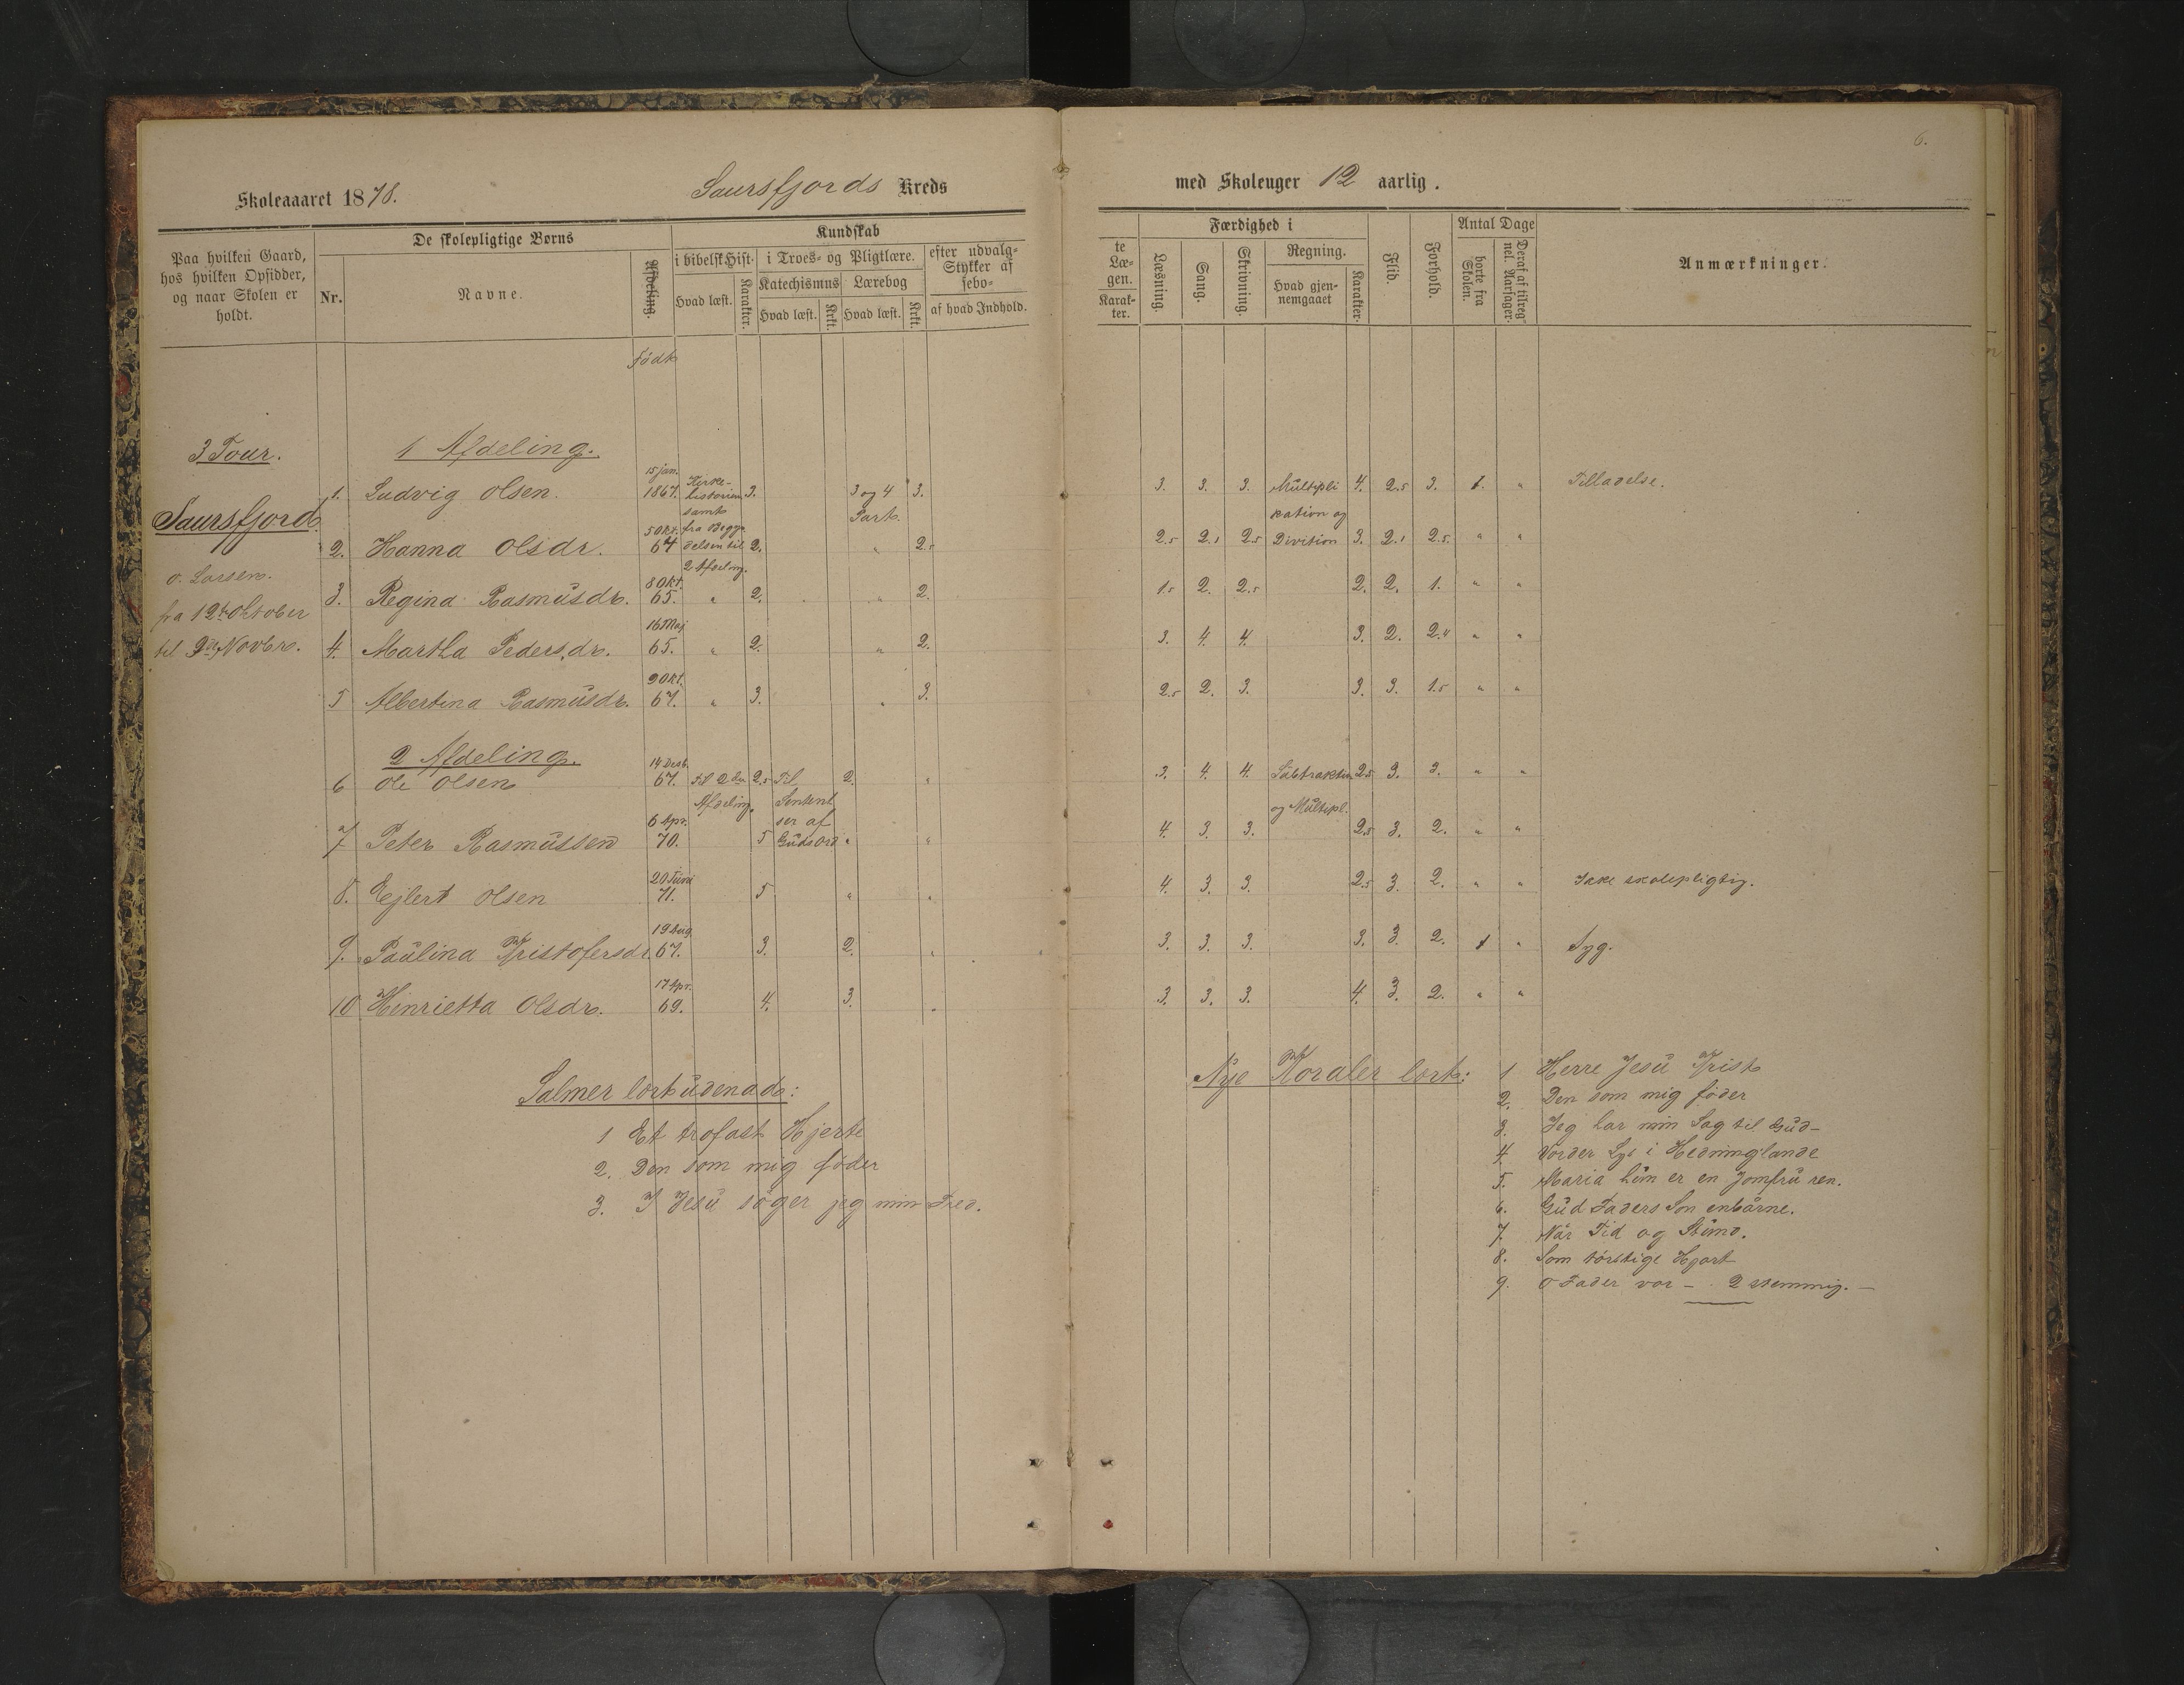 6.
Skoleaaaret 1878. Saursfjords Kreds med Skoleuger 12 aarlig.
Paa hvilken Gaard, hos hvilken Opsidder, og naar Skolen er holdt.
De skolepligtige Børns
Nr. Navne. Afdeling.
Kundskab
i bibelsk Hist. Hvad læst. Karakter.
i Troes- og Pligtlære.
Katechismus Hvad læst. Krkt.
Lærebog Hvad læst. Krkt.
efter udvalg- Stykker af sebo- af hvad Indhold.
te Læ- gen. Karak- ter.
Færdighed i
Læsning. Sang. Skrivning.
Regning. Hvad gjen- nemgaaet Karakter.
Flid. Forhold.
Antal Dage
borte fra Skolen. Deraf af tilreg- nel. Aarsager.
Anmærkninger.
født
3 Tour.
Saursfjord
O. Larsen.
fra 12te Oktober
til 9de Novbr.
1 Afdeling.
1. Ludvig Olsen. 15 jan. 1867. Kirke- historien samt fra Begyn delsen til 2 Afdeling. 3. 3 og 4 Part. 3. 3. 3. 3. Multipli kation og Division 4. 2.5 3. 1. " Tilladelse.
2. Hanna Olsdr. 5 Okt. 64 2. " 2.5 2.5 2.5 3. 2.5 2.5. " "
3. Regina Rasmusdr. 8 Okt. 65. " 2. " 2. 1.5 2. 2.5 2. 2. 1. " "
4. Martha Pedersdr. 16 Maj 65. " 2. " 2. 3. 4. 4. 3. 2. 2. " "
5 Albertina Rasmusdr. 9 Okt. 67. " 3. " 3. 2.5 2. 3. 3. 3. 1.5 " "
2 Afdeling.
6 Ole Olsen 14 Desb. 67. til 2den Afdeling. 2.5 Til Sentent ser af Guds Ord 2. " 3. 4. 4. Subtraktion og Multipl. 2.5 3. 3. " "
7 Peter Rasmussen 6 Apr. 70. 5 " " 4. 3. 3. 2.5 3. 2. " "
8. Ejlert Olsen 20 Juni 71. 5 " " 4. 3. 3. 2.5 3. 2. " " Ikke skolepligtig.
9. Paulina Kristofersdr. 19 Aug. 67. 3. 2. " 3. 3. 3. 3. 3. 2. 1 " Syg.
10 Henrietta Olsdr. 17 Apr. 69. 4. 3. " 3. 3. 3. 4. 3. 2. " "
Salmer lært udenad:
1 Et trofast Hjerte
2. Den som mig føder
3. I Jesu søger jeg min Fred.
Nye Koraler lært:
1 Herre Jesu Krist
2. Den som mig føder
3. Jeg har min Sag til Gud-
4. Vorder Lys i Hedninglande
5. Maria hun er en Jomfru ren.
6. Gud Faders Søn enbårne.
7. Når Tid og Stund.
8. Som tørstige Hjort
9. O Fader vor - 2 stemmig. -